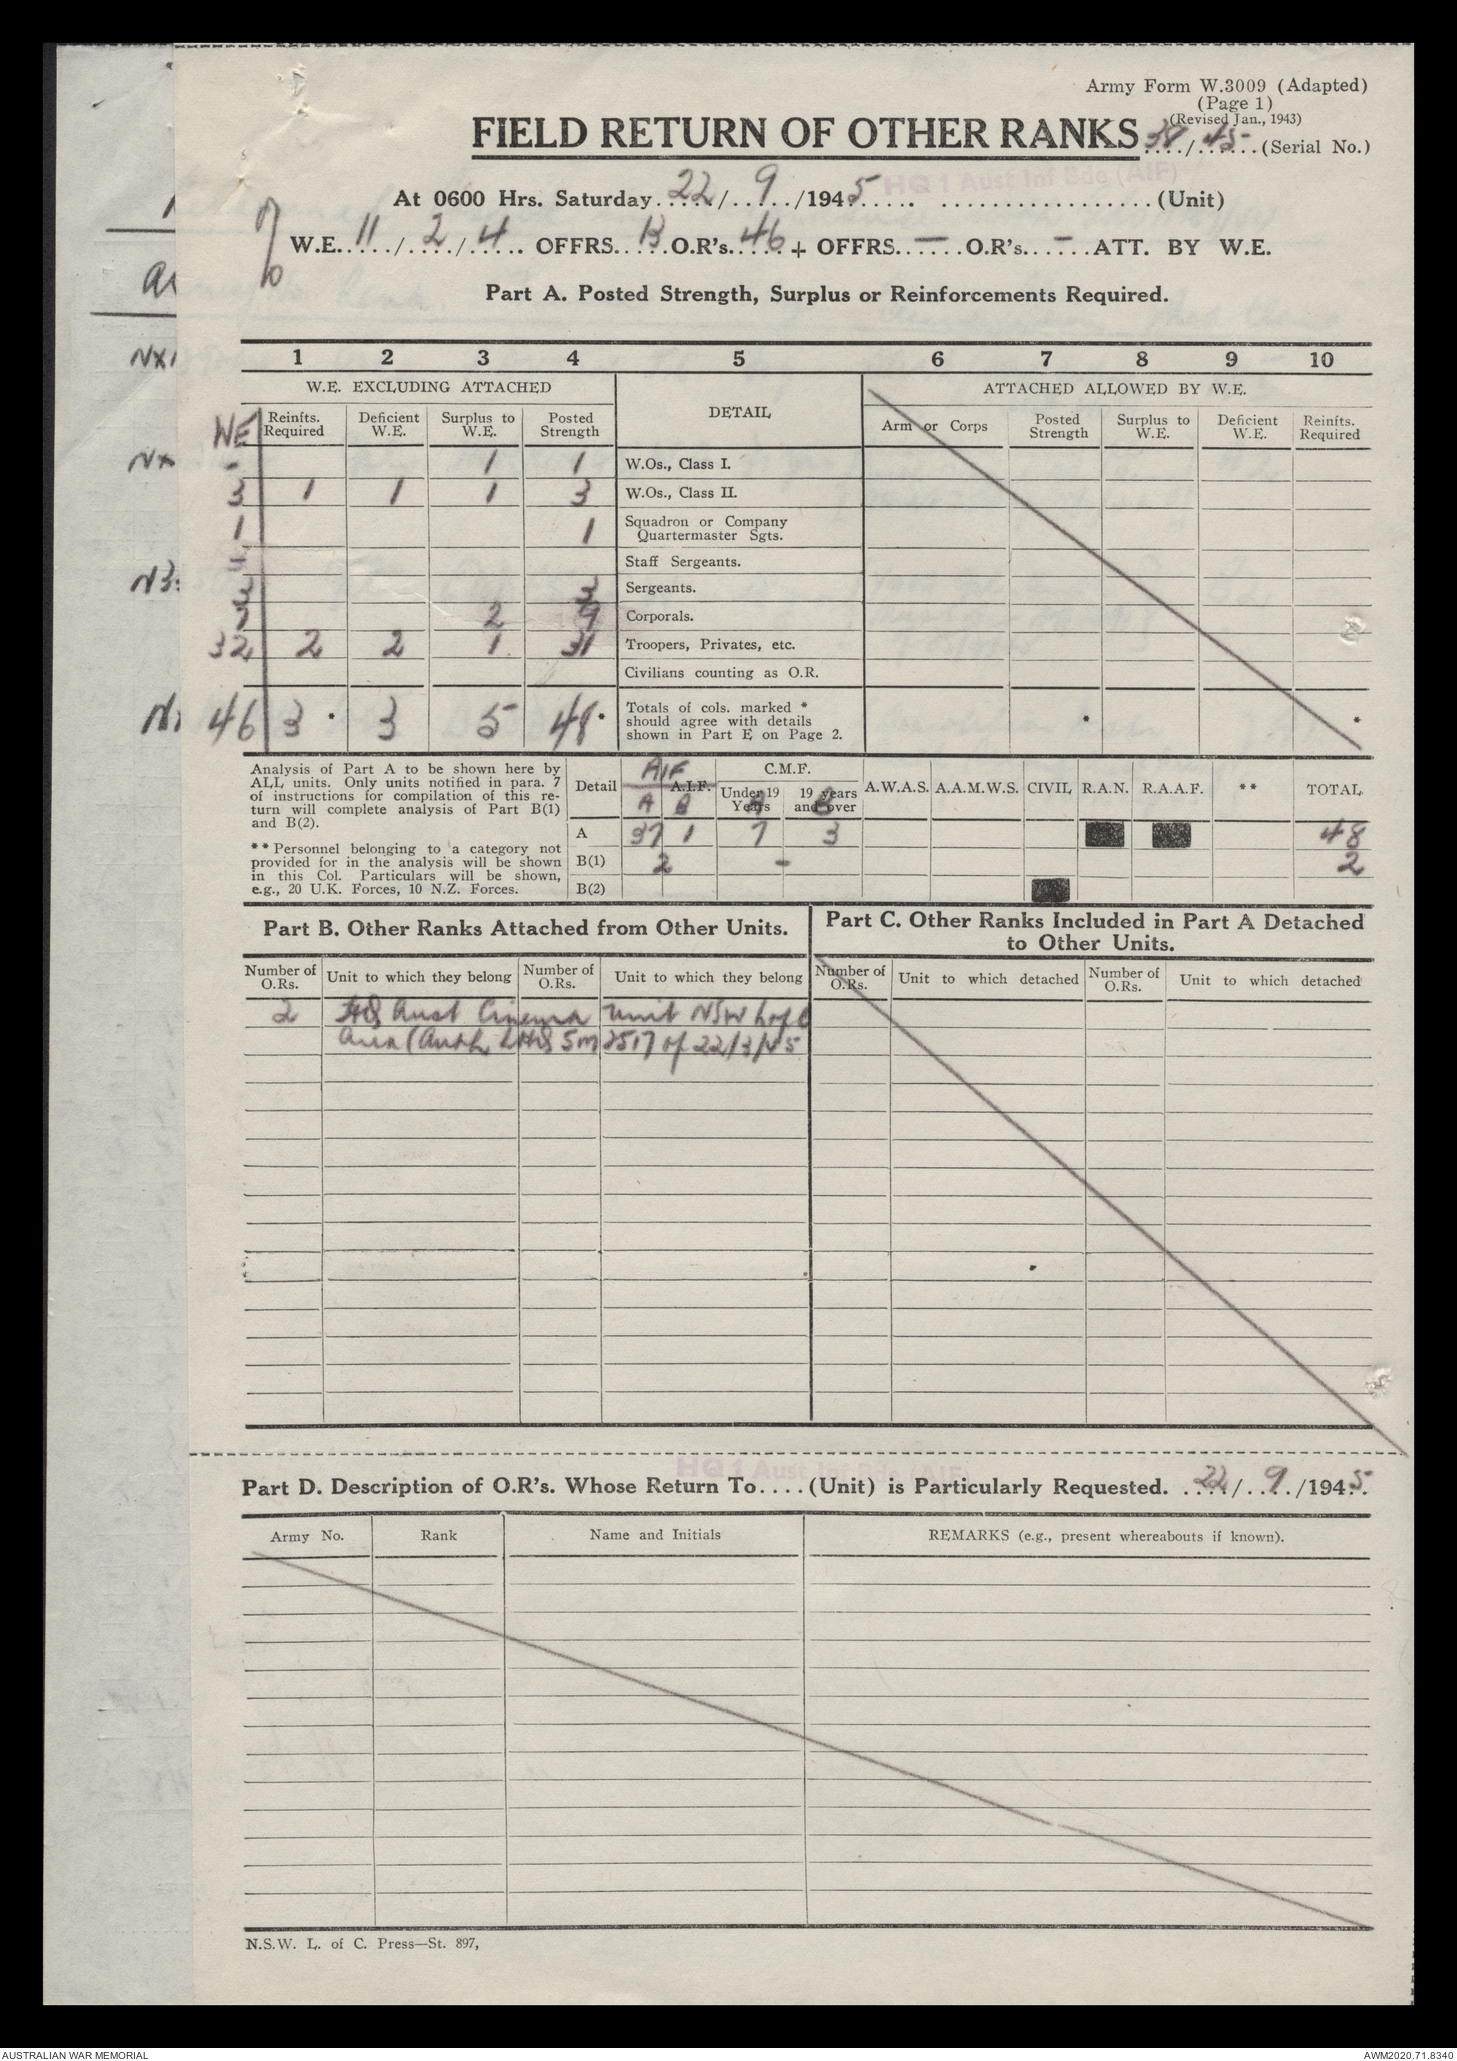 Army Form W.3009 (Adapted)
(Page 1)
(Revised Jan., 1943)
FIELD RETURN OF OTHER RANKS 38/45 (Serial No.)
HQ 1 Aust Inf Bdg (AIF)
At 0600 Hrs. Saturday 22/9/1945 (Unit)
W.E. 11/2/4 OFFRS. 13 O.R's. 46 + OFFRS. — O.R's. — ATT. BY W.E.
Part A. Posted Strength, Surplus or Reinforcements Required.
1 2 3 4 5 6 7 8 9 10
W.E. EXCLUDING ATTACHED DETAIL ATTACHED ALLOWED BY W.E.
WE Reinfts. Required Deficient W.E. Surplus to W.E. Posted Strength Arm or Corps Posted Strength Surplus to W.E. Deficient W.E. Reinfts. Required
- 1 1 W.Os., Class I.
3 1 1 1 3 W.Os., Class II.
1 1 Squadron or Company
Quartermaster Sgts.
Staff Sergeants.
3 3 Sergeants.
7 2 9 Corporals.
32 2 2 1 31 Troopers, Privates, etc.
Civilians counting as O.R.
46 3 * 3 5 48 * Totals of cols. marked *
should agree with details
shown in Part E on Page 2. * *
Analysis of Part A to be shown here by
ALL units. Only units notified in para. 7
of instructions for compilation of this re-
turn will complete analysis of Part B(1)
and B(2).
** Personnel belonging to a category not
provided for in the analysis will be shown
in this Col. Particulars will be shown,
e.g., 20 U.K. Forces, 10 N.Z. Forces.
Detail AIF A.I.F. C.M.F. A.W.A.S. A.A.M.W.S. CIVIL R.A.N. R.A.A.F. ** TOTAL
A B Under 19 Years 19 years and over
A 37 1 7 3 48
B(1) 2 - 2
B(2)
Part B. Other Ranks Attached from Other Units.
Part C. Other Ranks Included in Part A Detached
to Other Units.
Number of O.Rs. Unit to which they belong Number of O.Rs. Unit to which they belong Number of O.Rs. Unit to which detached Number of O.Rs. Unit to which detached
2 HQ Aust Cinema Unit NSW L of C
Area (Auth LHQ SM 2517 of 22/3/45
HQ 1 Aust Inf Bde (AIF)
Part D. Description of O.R's. Whose Return To....(Unit) is Particularly Requested. 22/9/1945
Army No. Rank Name and Initials REMARKS (e.g., present whereabouts if known).
N.S.W. L. of C. Press—St. 897,
AUSTRALIAN WAR MEMORIAL AWM2020.71.8340